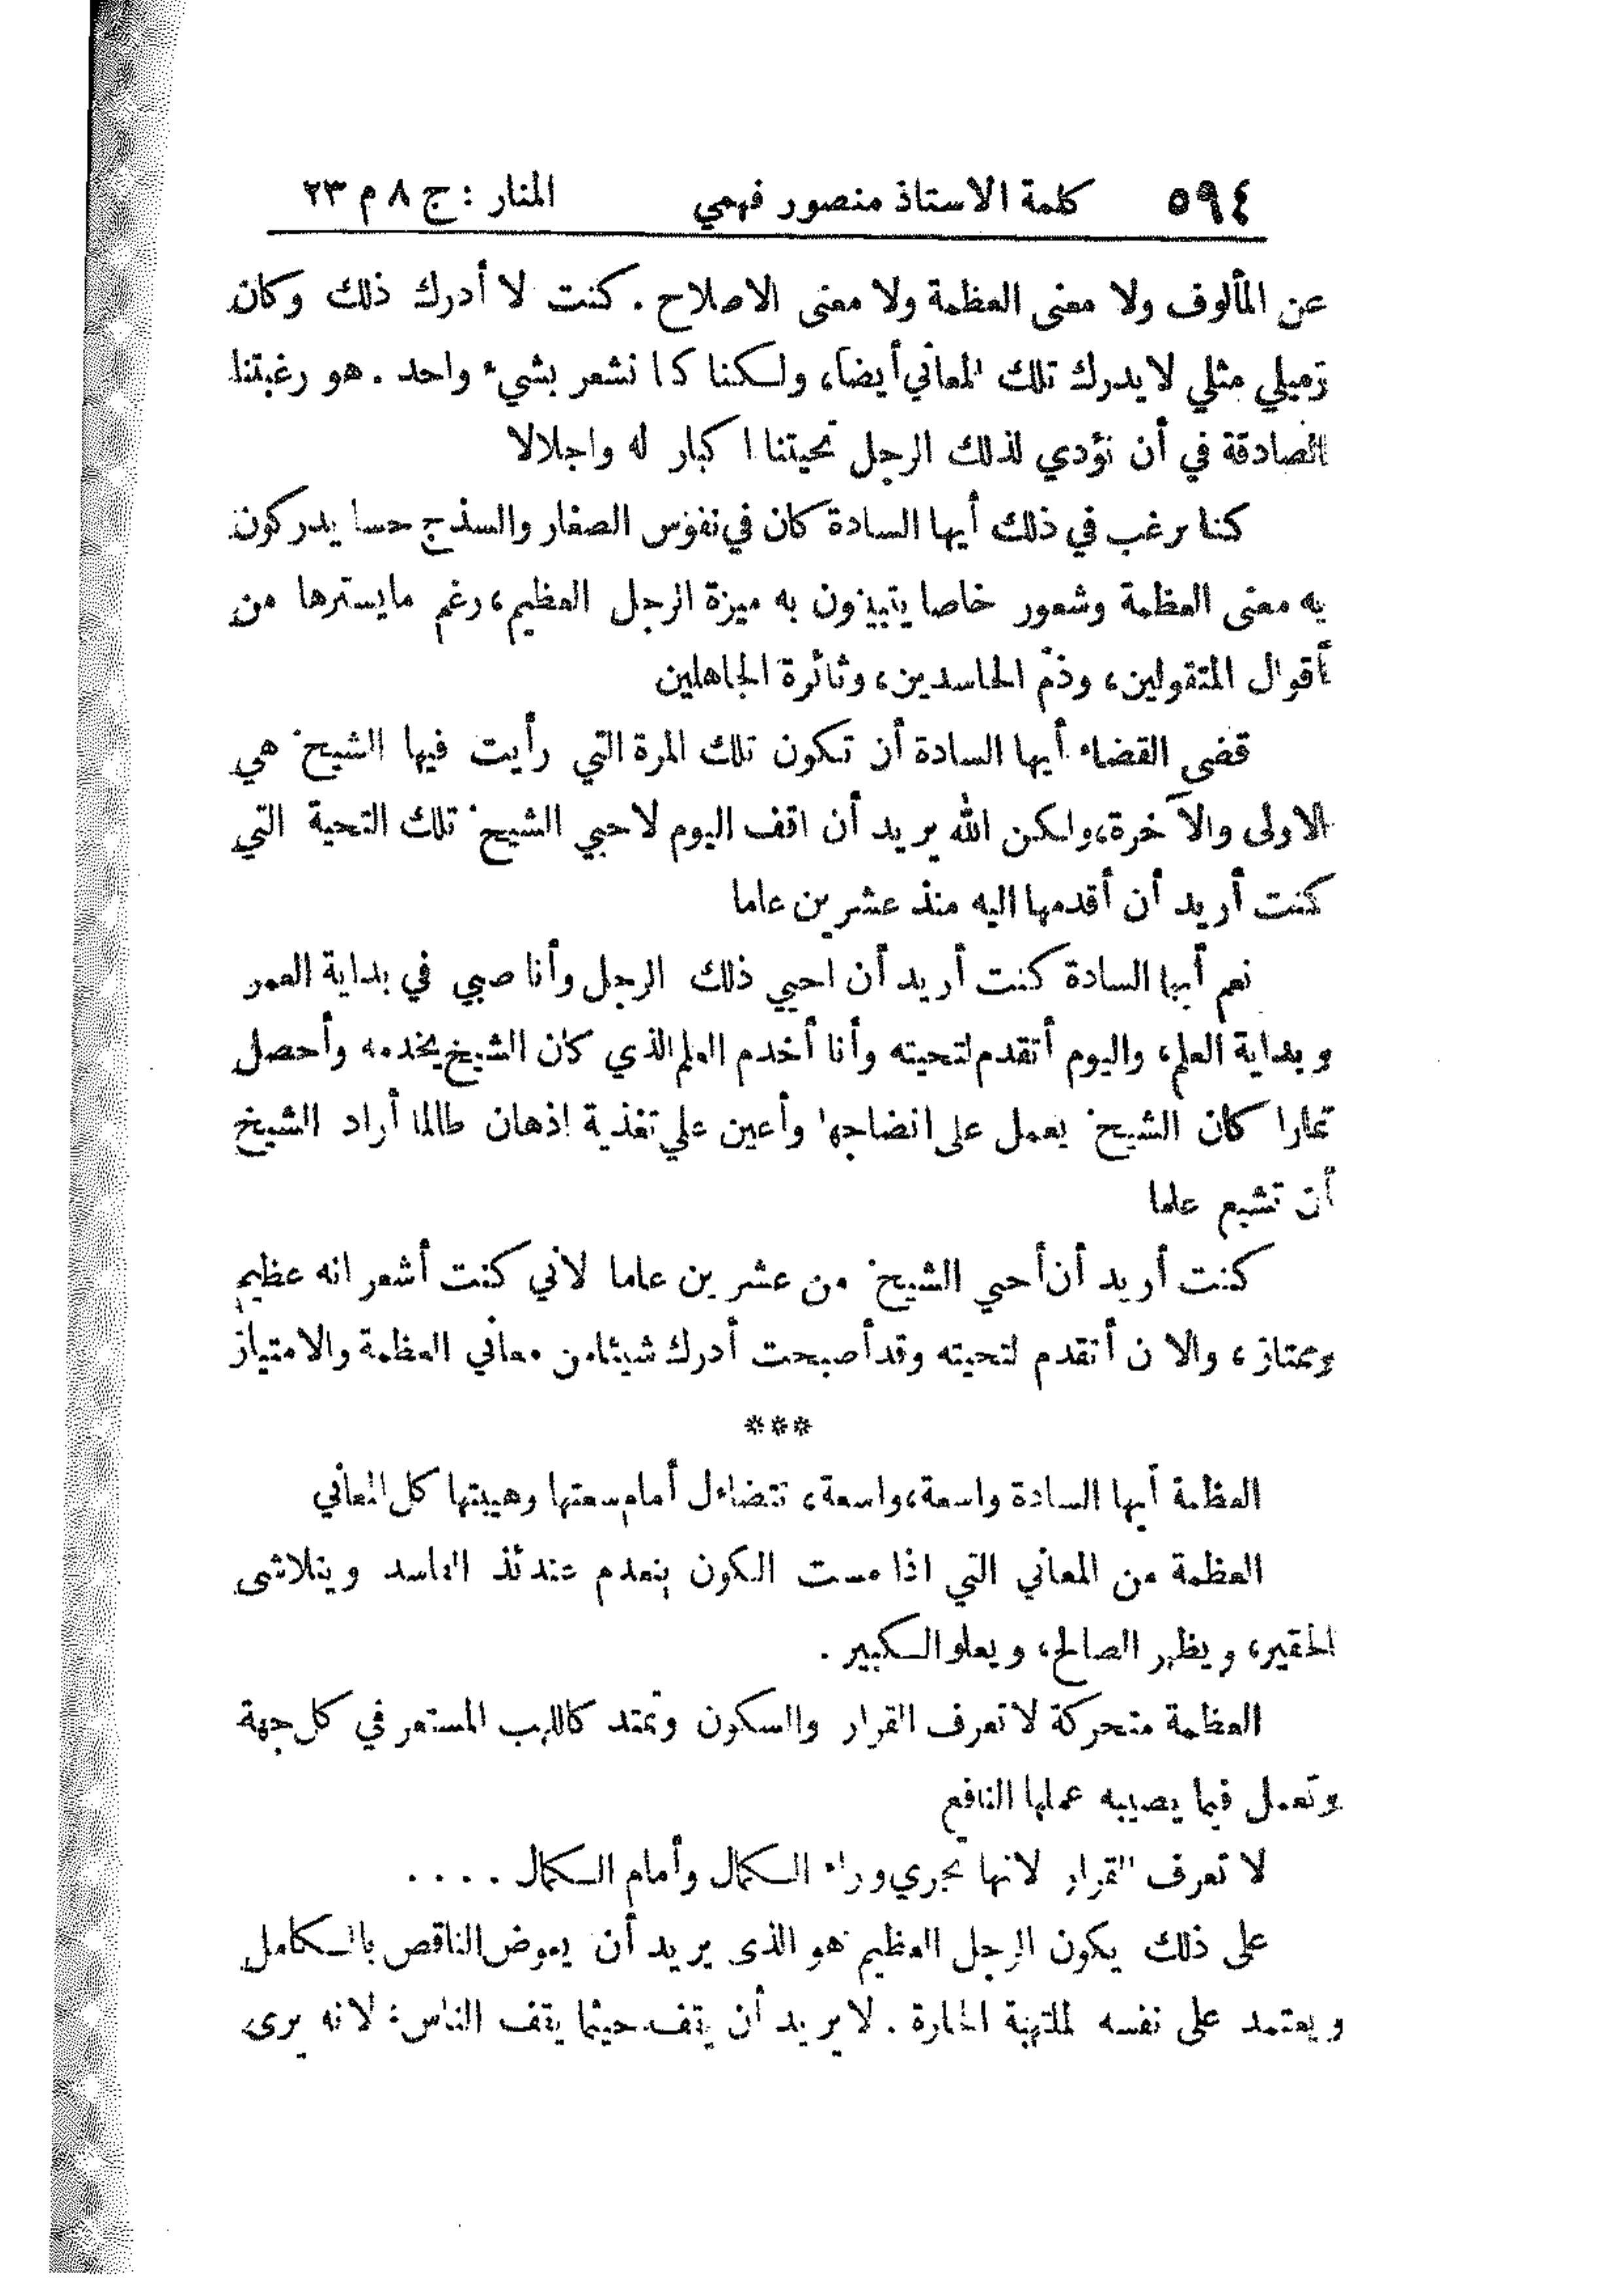 ٥٩٤ كلمة الاستاذ منصور فهمي المنار : ج ٨ م ٢٣
عن المألوف ولا معنى العظمة ولا معنى الاصلاح . كنت لا أدرك ذلك وكان
زميلي مثلي لا يدرك تلك المعاني أيضا، ولكننا كنا نشعر بشيء واحد . هو رغبتنا
الصادقة في أن نؤدي لذلك الرجل تحيتنا اكبار له واجلالا
كنا نرغب في ذلك أيها السادة كان في نفوس الصغار والسذج حسا يدركون
به معنى العظمة وشعور خاصا يتبينون به ميزة الرجل العظيم، رغم مايسترها من
أقوال المتقولين، وذم الحاسدين، وثائرة الجاهلين
قضى القضاء أيها السادة أن تكون تلك المرة التي رأيت فيها الشيخ هي
الاولى والآخرة، ولكن الله يريد أن اقف اليوم لاحيي الشيخ تلك التحية التي
كنت أريد أن أقدمها اليه منذ عشرين عاما
نعم أيها السادة كنت أريد أن احيي ذلك الرجل وأنا صبي في بداية العمر
وبداية العلم، واليوم أتقدم لتحيته وأنا أخدم العلم الذي كان الشيخ يخدمه وأحصل
ثمارا كان الشيخ يعمل على انضاجها وأعين علي تغذية اذهان طالما أراد الشيخ
أن تشبع علما
كنت أريد أن أحيي الشيخ من عشرين عاما لاني كنت أشعر انه عظيم
وممتاز، والان أتقدم لتحيته وقد أصبحت أدرك شيئا من معاني العظمة والامتياز
***
العظمة أيها السادة واسعة، واسعة، تتضاءل أمام سعتها وهيبتها كل المعاني
العظمة من المعاني التي اذا مست الكون ينعدم عندئذ الفاسد ويتلاشى
الحقير، ويظهر الصالح، ويعلو الكبير .
العظمة متحركة لا تعرف القرار والسكون وتمتد كاللهب المستعر في كل جهة
وتعمل فيما يصيبه عملها النافع
لا تعرف القرار لانها تجري وراء الكمال وأمام الكمال . . . .
على ذلك يكون الرجل العظيم هو الذى يريد أن يعوض الناقص بالكامل
ويعتمد على نفسه الملتهبة الحارة . لا يريد أن يقف حيثما يقف الناس : لانه يرى